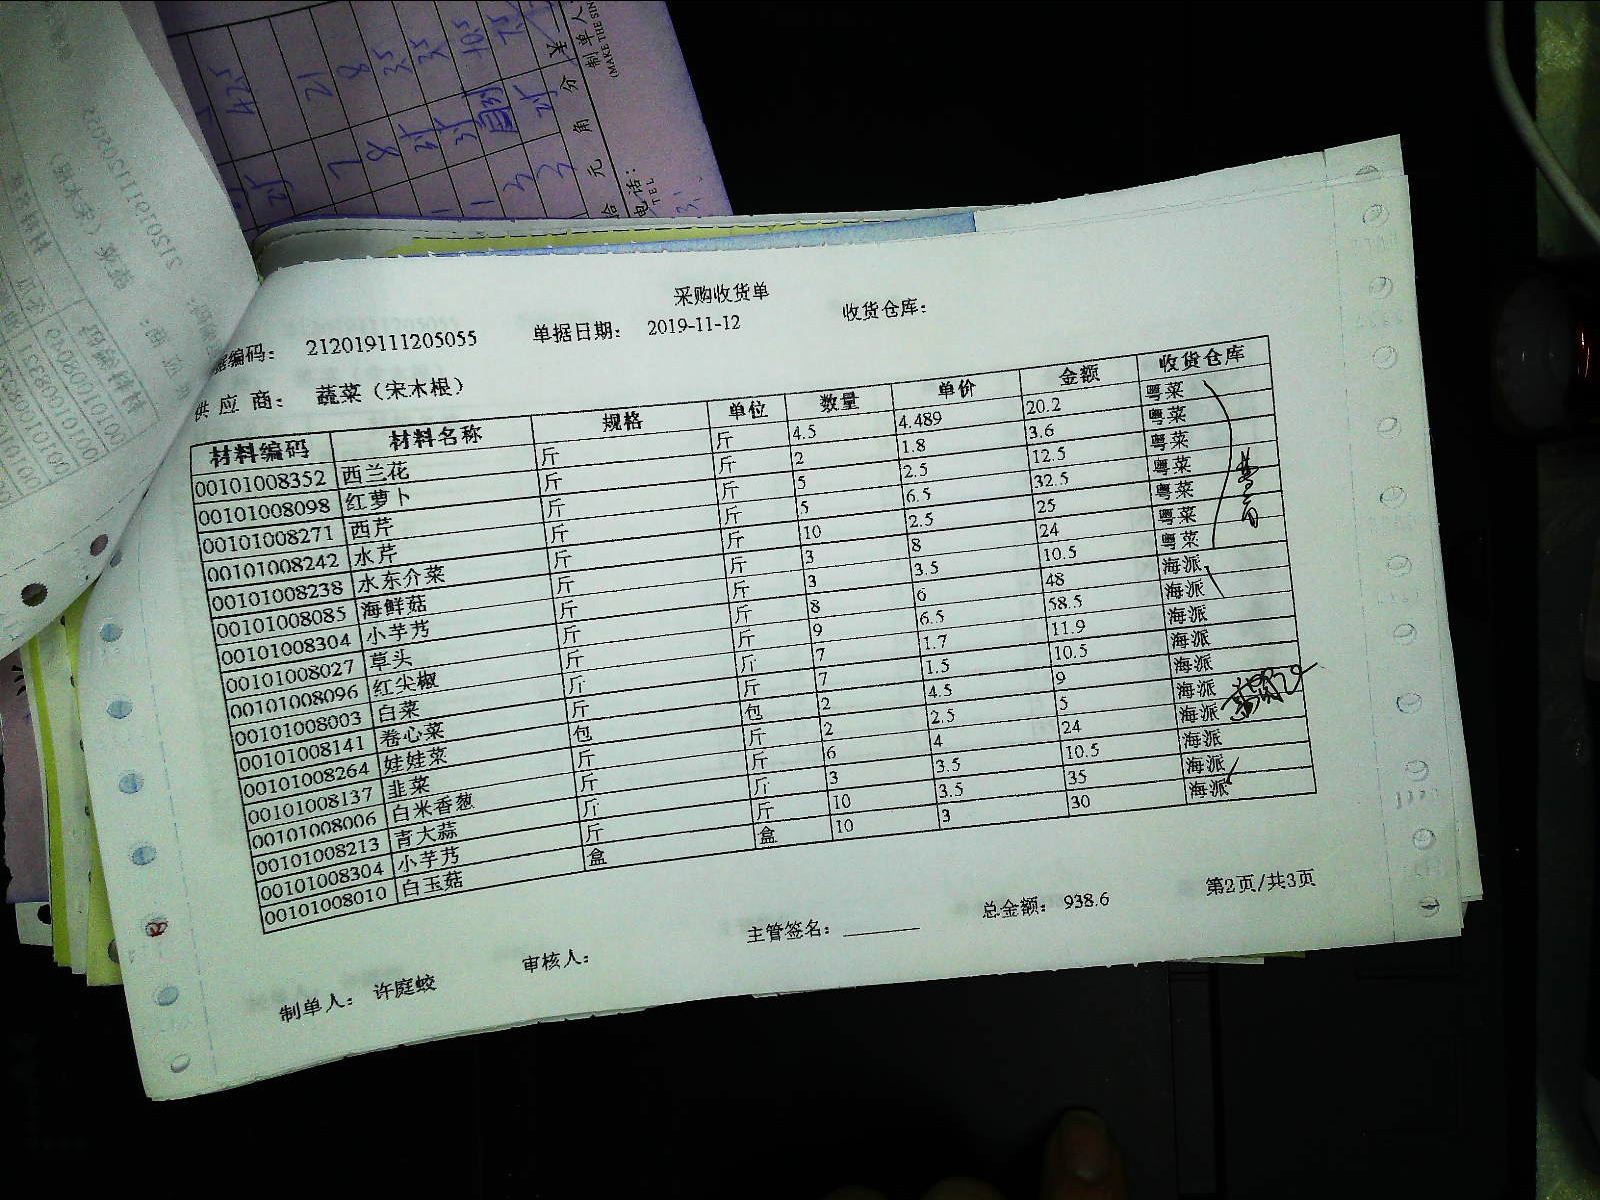 采购收货单
据编码: 212019111205055 单据日期: 2019-11-12 收货仓库:
供应商: 蔬菜（宋木根）
材料编码 材料名称 规格 单位 数量 单价 金额 收货仓库
00101008352 西兰花 斤 斤 4.5 4.489 20.2 粤菜
00101008098 红萝卜 斤 斤 2 1.8 3.6 粤菜
00101008271 西芹 斤 斤 5 2.5 12.5 粤菜
00101008242 水芹 斤 斤 5 6.5 32.5 粤菜
00101008238 水东介菜 斤 斤 10 2.5 25 粤菜
00101008085 海鲜菇 斤 斤 3 8 24 粤菜
00101008304 小芋艿 斤 斤 3 3.5 10.5 粤菜
00101008027 草头 斤 斤 8 6 48 海派
00101008096 红尖椒 斤 斤 9 6.5 58.5 海派
00101008003 白菜 斤 斤 7 1.7 11.9 海派
00101008141 卷心菜 斤 斤 7 1.5 10.5 海派
00101008264 娃娃菜 包 包 2 4.5 9 海派
00101008137 韭菜 斤 斤 2 2.5 5 海派
00101008006 白米香葱 斤 斤 6 4 24 海派
00101008213 青大蒜 斤 斤 3 3.5 10.5 海派
00101008304 小芋艿 斤 斤 10 3.5 35 海派
00101008010 白玉菇 盒 盒 10 3 30 海派
制单人: 许庭蛟 审核人: 主管签名: 总金额: 938.6 第2页/共3页